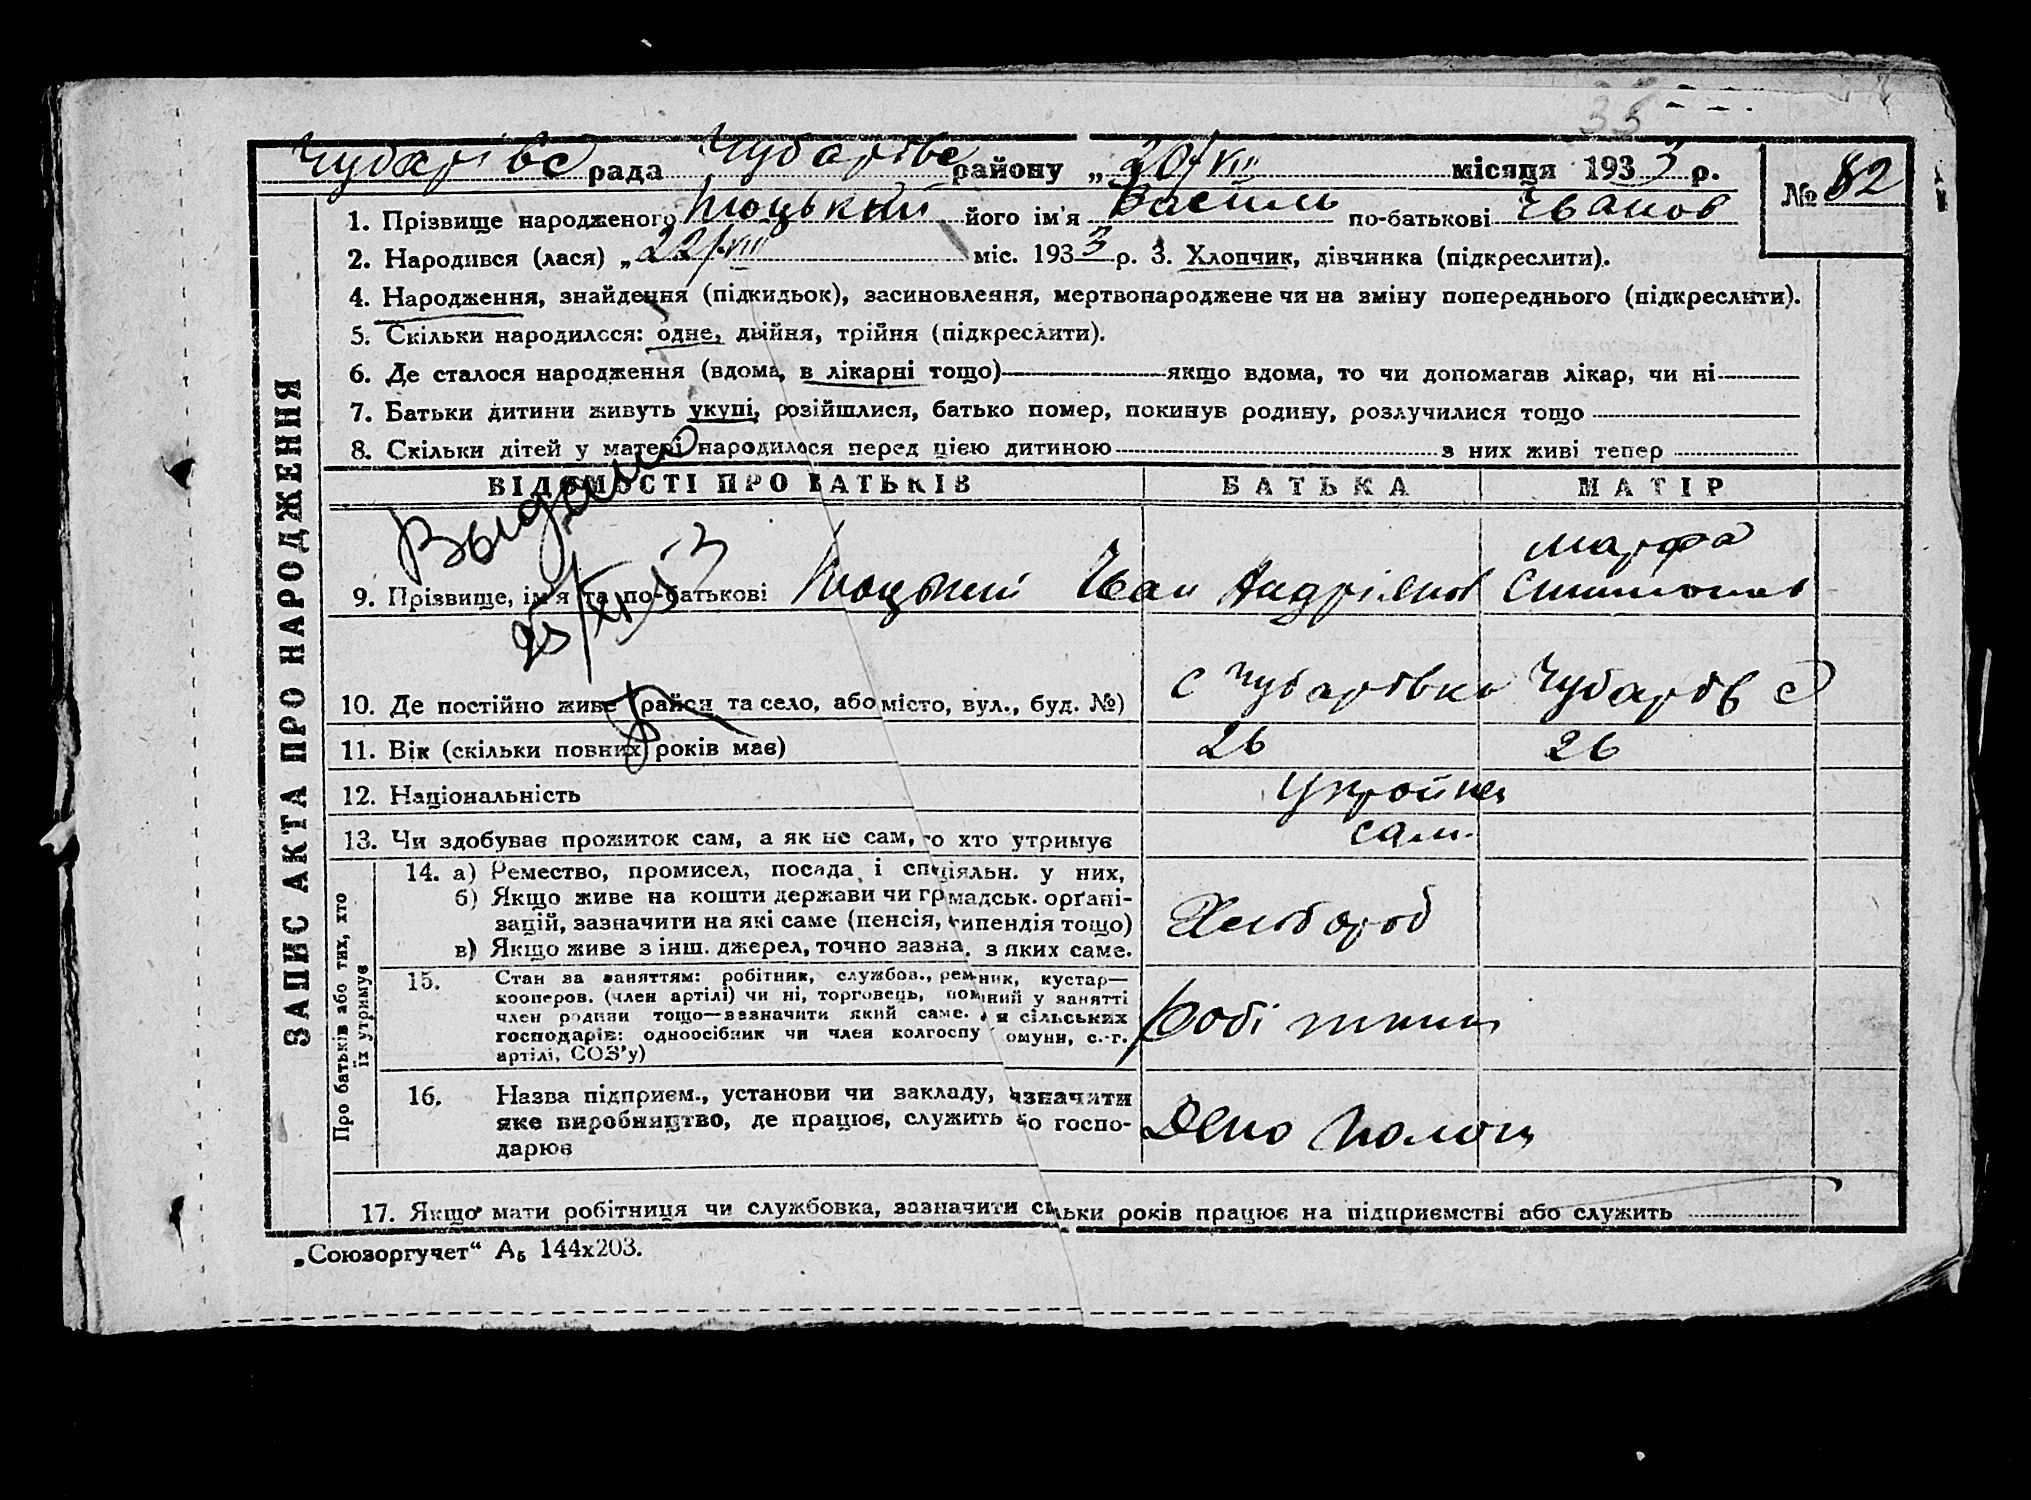 35
Чубарівс рада Чубарівс району „30/VIII місяця 1933 р.
№ 82
1. Прізвище народженого його ім'я Василь по-батькові Іванов
2. Народився (лася) „22/VIII міс. 1933 р. 3. Хлопчик, дівчинка (підкреслити).
4. Народження, знайдення (підкидьок), засиновлення, мертвонароджене чи на зміну попереднього (підкреслити).
5. Скільки народилося: одне, двійня, трійня (підкреслити).
6. Де сталося народження (вдома, в лікарні тощо) якщо вдома, то чи допомагав лікар, чи ні
7. Батьки дитини живуть укупі, розійшлися, батько помер, покинув родину, розлучилися тощо
8. Скільки дітей у матері народилося перед цією дитиною з них живі тепер
ЗАПИС АКТА ПРО НАРОДЖЕННЯ
ВІДОМОСТІ ПРО БАТЬКІВ БАТЬКА МАТІР
Выдано
25/XI 53
Марфа
9. Прізвище, ім'я та по-батькові Іван Андріянов
10. Де постійно живе (район та село, або місто, вул., буд. №) с Чубарівка Чубарів с
11. Вік (скільки повних років має) 26 26
12. Національність Україн
13. Чи здобуває прожиток сам, а як не сам, то хто утримує сам.
Про батьків або тих, хто
їх утримує
14. а) Ремество, промисел, посада і спеціяльн. у них,
б) Якщо живе на кошти держави чи громадськ. орґані-
зацій, зазначити на які саме (пенсія, стипендія тощо)
в) Якщо живе з інш. джерел, точно зазна. з яких саме.
Хлібороб
15. Стан за заняттям: робітник, службов., рем-ник, кустар—
кооперов. (член артілі) чи ні, торговець, пом-ний у занятті
член родини тощо—зазначити який саме. я сільських
господарів: одноосібник чи член колгоспу омуни, с.-г.
артілі, СОЗ'у)
Робітник
16. Назва підприєм., установи чи закладу, зазначити
яке виробництво, де працює, служить бо госпо-
дарює
Депо Полог
17. Якщо мати робітниця чи службовка, зазначити скільки років працює на підприємстві або служить
„Союзоргучет“ А₅ 144х203.